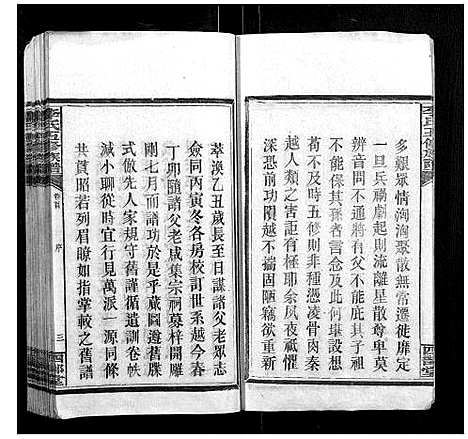 多艱眾情洶洶聚散無常遷徙靡定
一旦兵禍劇起則流離星散尊卑莫
辨音問不通將有父不能庇其子祖
不能保其孫者言念及此何堪設想
若不及時五修則非種憑凌骨肉秦
越人類之害詎有極耶余夙夜祗懼
深恐前功隕越不揣固陋竊欲重新
萃渙乙丑歲長至日謀諸父老眾志
僉同丙寅冬各房校訂世系越今春
丁卯隨諸父老咸集宗祠募梓開雕
閱七月而譜功於是乎蕆圖遵舊牒
式倣先人家規守舊謹循遺訓卷帙
減小聊從時宜行見萬派一源同條
共貫昭若列眉瞭如指掌較之舊譜
卷首
序
三